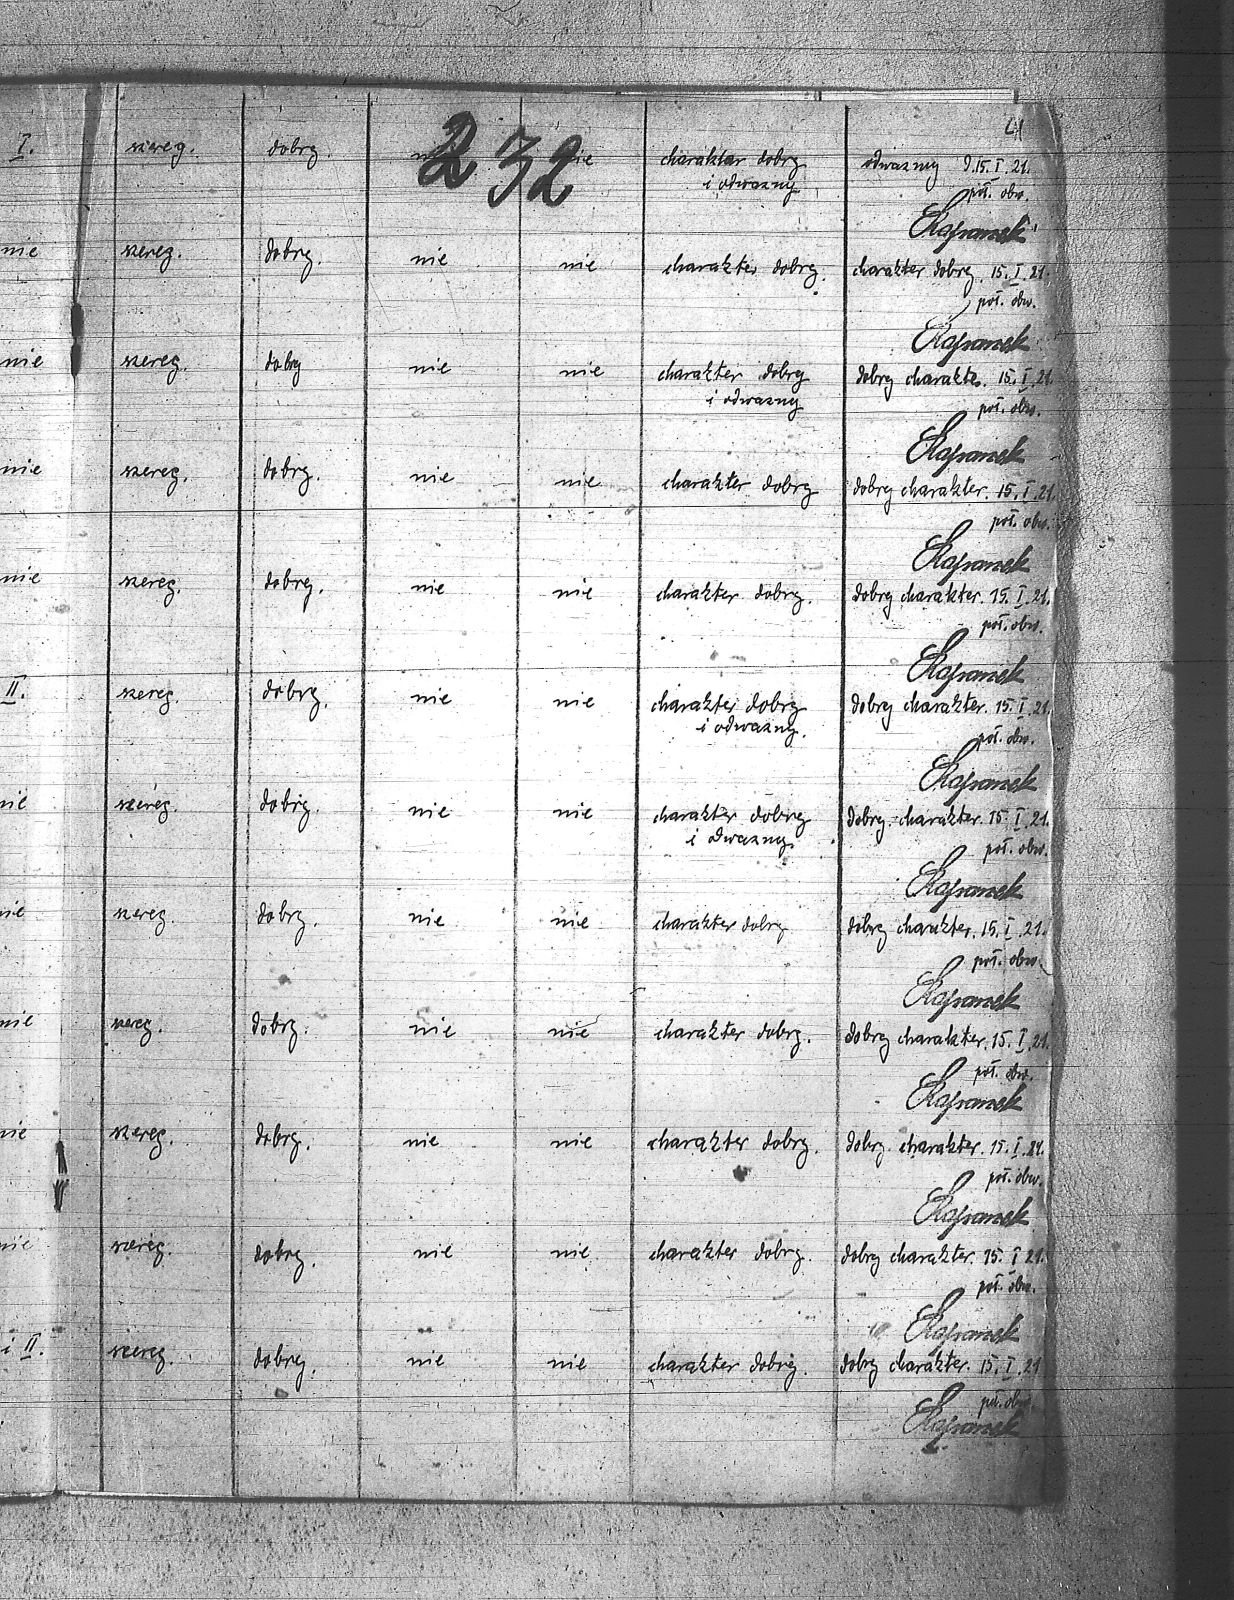 232
41
I. szereg. dobry. nie charakter dobry odważny D.15.I.21.
i odważny poł. obw.
nie szereg. dobry. nie nie charakter dobry. charakter dobry. 15.I.21.
poł. obw.
nie szereg. dobry nie nie charakter dobry dobry charakte. 15.I.21.
i odważny poł. obw.
nie szereg. dobry. nie nie charakter dobry dobry charakter. 15.I.21.
poł. obw.
nie szereg. dobry. nie nie charakter dobry. dobry charakter. 15.I.21.
poł. obw.
II. szereg. dobry. nie nie charakter dobry dobry charakter. 15.I.21.
i odważny. poł. obw.
nie szereg. dobry. nie nie charakter dobry dobry charakter. 15.I.21.
i odważny. poł. obw.
nie szereg. dobry. nie nie charakter dobry dobry charakter. 15.I.21.
poł. obw.
nie szereg. dobry. nie nie charakter dobry. dobry charakter. 15.I.21.
poł. obw.
nie szereg. dobry. nie nie charakter dobry. dobry charakter. 15.I.21.
poł. obw.
nie szereg. dobry. nie nie charakter dobry. dobry charakter. 15.I.21.
poł. obw.
i II. szereg. dobry. nie nie charakter dobry. dobry charakter. 15.I.21
poł. obw.